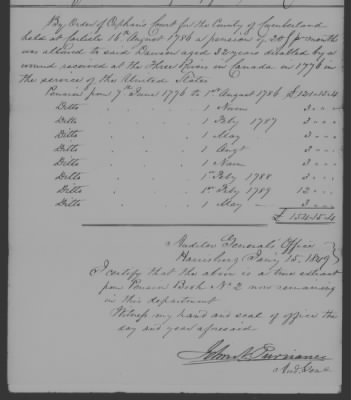 By Order of Orphans Court for the County of Cumberland
held at Carlisle 16 August 1786 a pension of 20/ p month
was allowed to said Dawson aged 32 years disabled by a
wound received at the Three Rivers in Canada in 1776 in
the service of the United States
Pension from 7th June 1776 to 1st August 1786 £ 121-15-4
Ditto . . . 1 Novem 3 " "
Ditto . . . 1 Feby 1787 3 " "
Ditto . . . 1 May 3 " "
Ditto . . . 1 Augt 3 " "
Ditto . . . 1 Novm 3 " "
Ditto . . . 1st Feby 1788 3 " "
Ditto . . . 1st Feby 1789 12 " "
Ditto . . . 1 May 3 " "
£ 154-15-4
Auditor General's Office
Harrisburg Jany 15. 1849
I certify that the above is a true extract
from Pension Book No 2 now remaining
in this department
Witness my hand and seal of office the
day and year aforesaid
John N Purviance
Aud. Genl